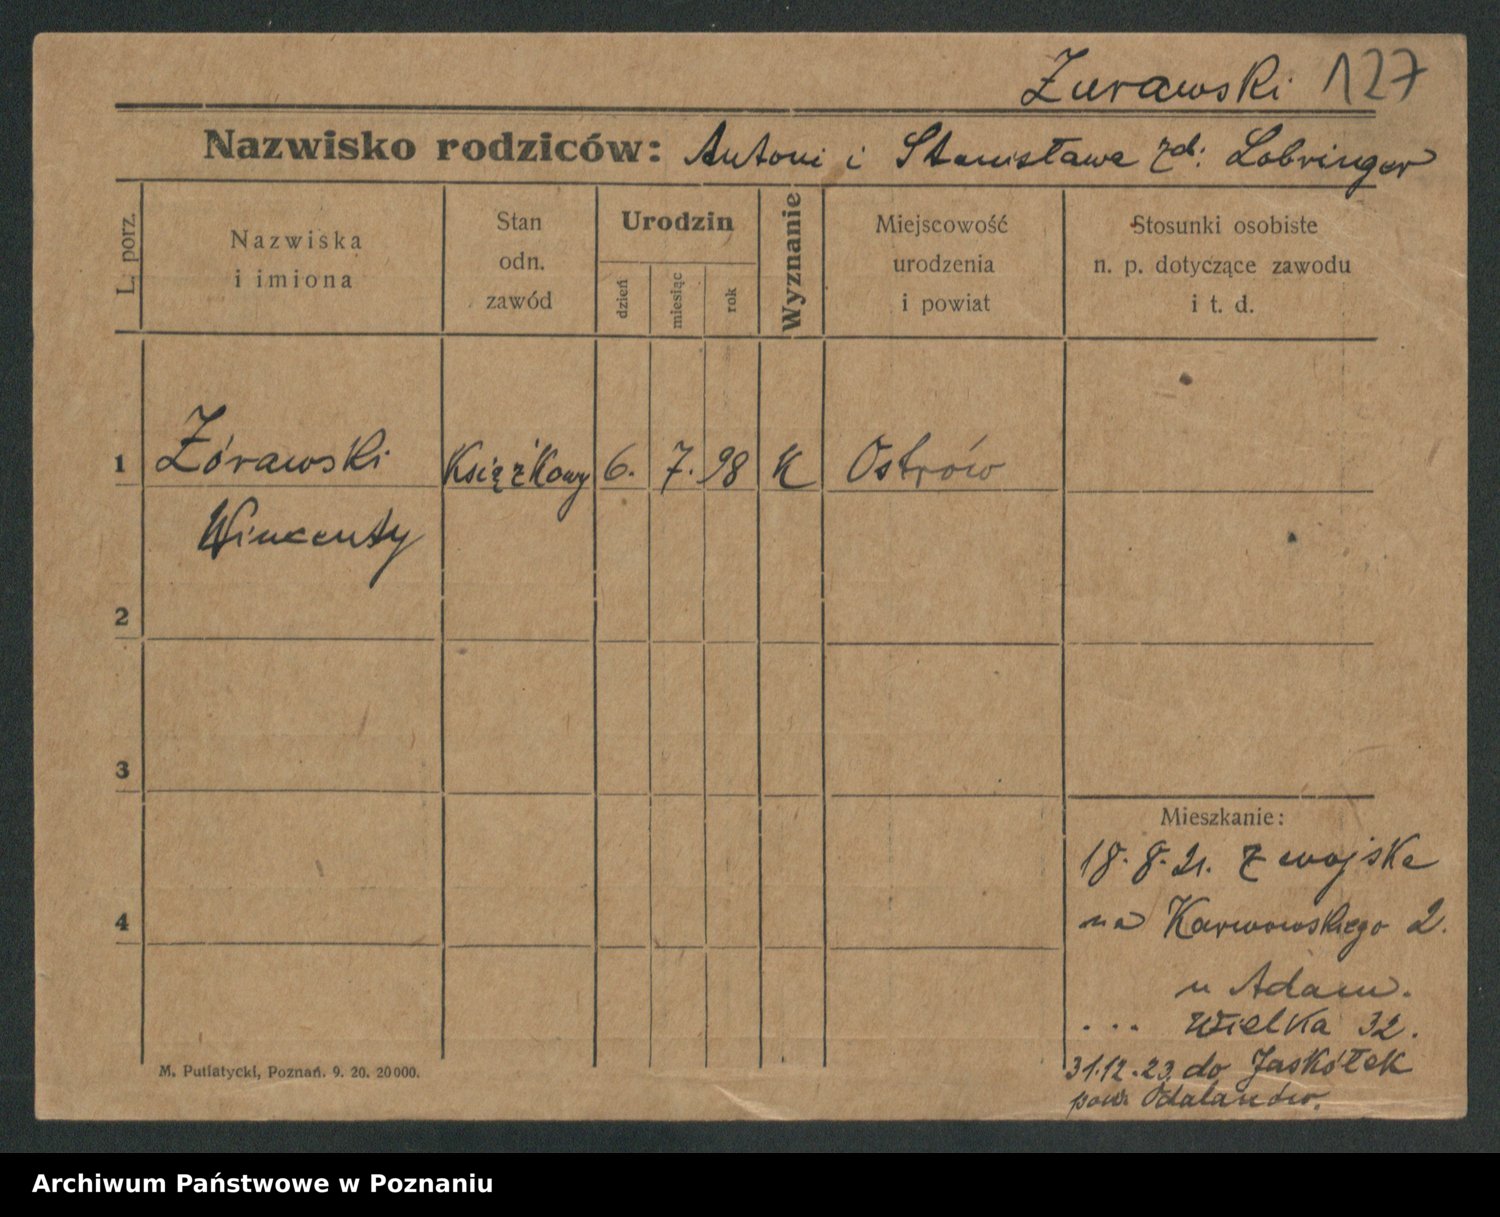 Żurawski 127
Nazwisko rodziców: Antoni i Stanisława zd: Lobringer
L. porz.
Nazwiska
i imiona
Stan
odn.
zawód
Urodzin
dzień
miesiąc
rok
Wyznanie
Miejscowość
urodzenia
i powiat
Stosunki osobiste
n. p. dotyczące zawodu
i t. d.
1 Żórawski Książkowy 6. 7. 98 K Ostrów
Wincenty
2
3
Mieszkanie:
18. 8. 21. z wojska
4
na Karwowskiego 2.
u Adam.
... Wielka 32.
31.12.23. do Jaskółek
pow. Odolanów.
M. Putiatycki, Poznań. 9. 20. 20000.
Archiwum Państwowe w Poznaniu